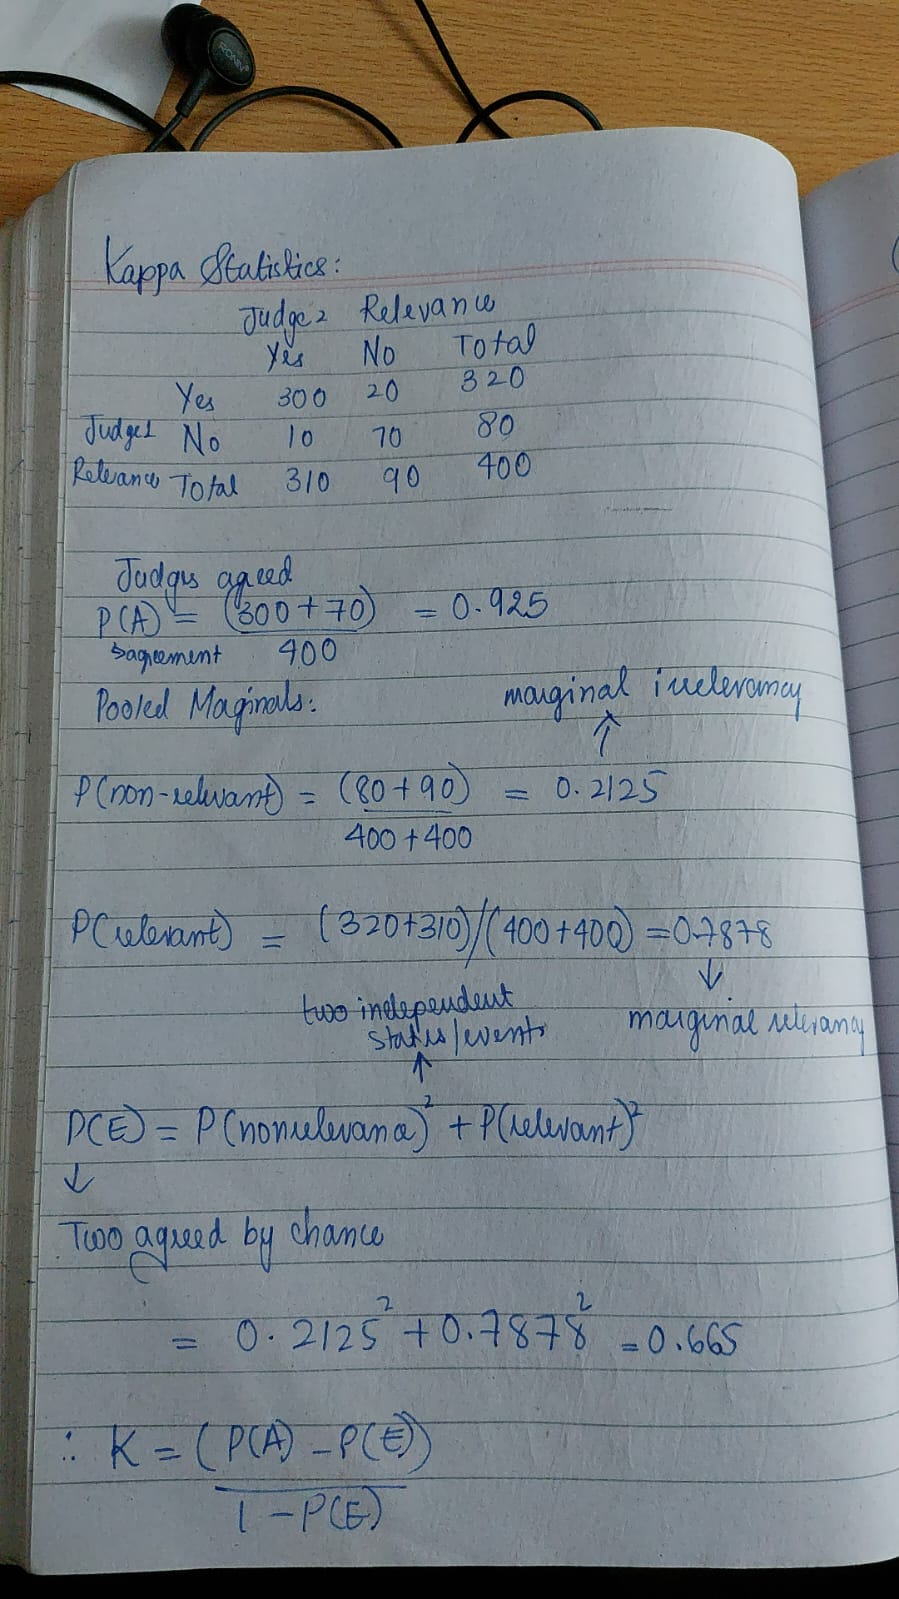 Kappa Statistics:
Judge 2 Relevance
Yes No Total
Yes 300 20 320
Judge 1 No 10 70 80
Relevance Total 310 90 400
Judges agreed
P(A) = (300+70) = 0.925
↳agreement 400
Pooled Maginals:
marginal irrelevancy
↑
P(non-relevant) = (80+90) = 0.2125
400+400
P(relevant) = (320+310)/(400+400) = 0.7878
↓
two independent
states/events
marginal relevancy
↑
P(E) = P(nonrelevance)² + P(relevant)²
↓
Two agreed by chance
= 0.2125² + 0.7878² = 0.665
∴ K = (P(A) - P(E))
1 - P(E)